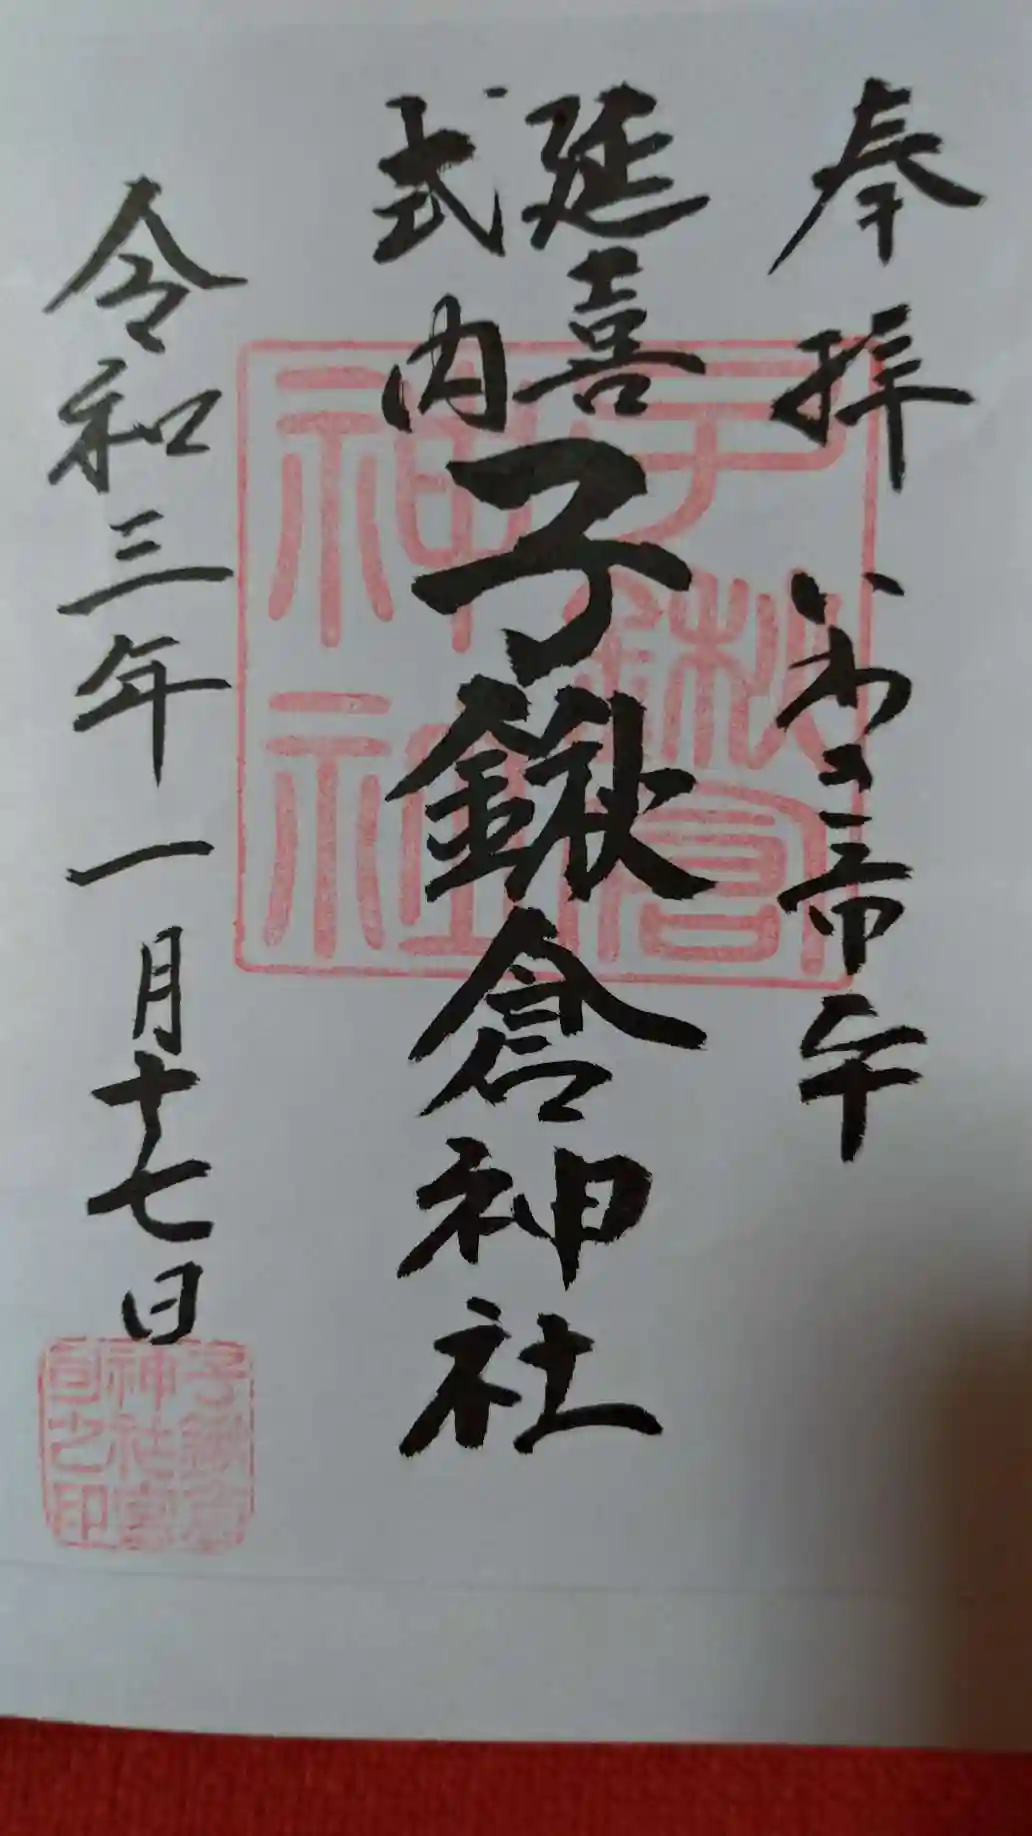 奉拝 いわき市平
延喜
式内
子鍬倉神社
令和三年一月十七日
子鍬倉
神社
子鍬倉
神社宮
司之印